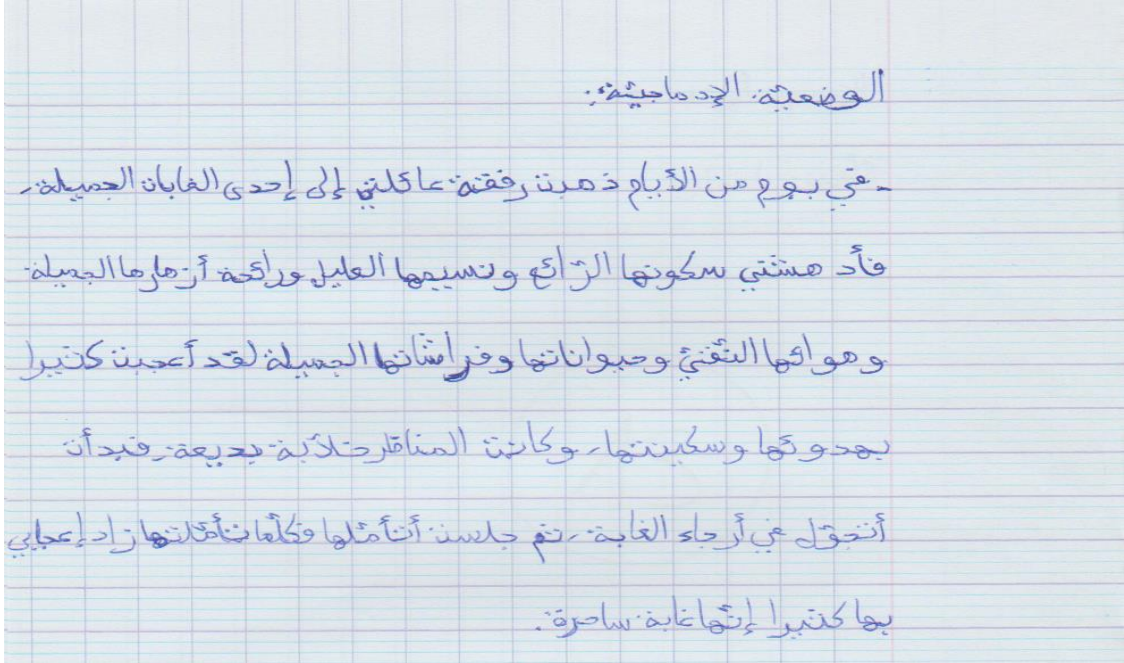 الوضعية الإدماجية:
- في يوم من الأيام ذهبت رفقة عائلتي إلى إحدى الغابات الجميلة،
فأدهشتني سكونها الرّائع ونسيمها العليل ورائحة أزهارها الجميلة
وهوائها النّقيّ وحيواناتها وفراشاتها الجميلة لقد أعجبت كثيرا
بهدوئها وسكينتها، وكانت المناظر خلاّبة بديعة، فبدأت
أتجوّل في أرجاء الغابة، ثم جلست أتأمّلها فكلّما تأمّلتها زاد إعجابي
بها كثيرا إنّها غابة ساحرة.